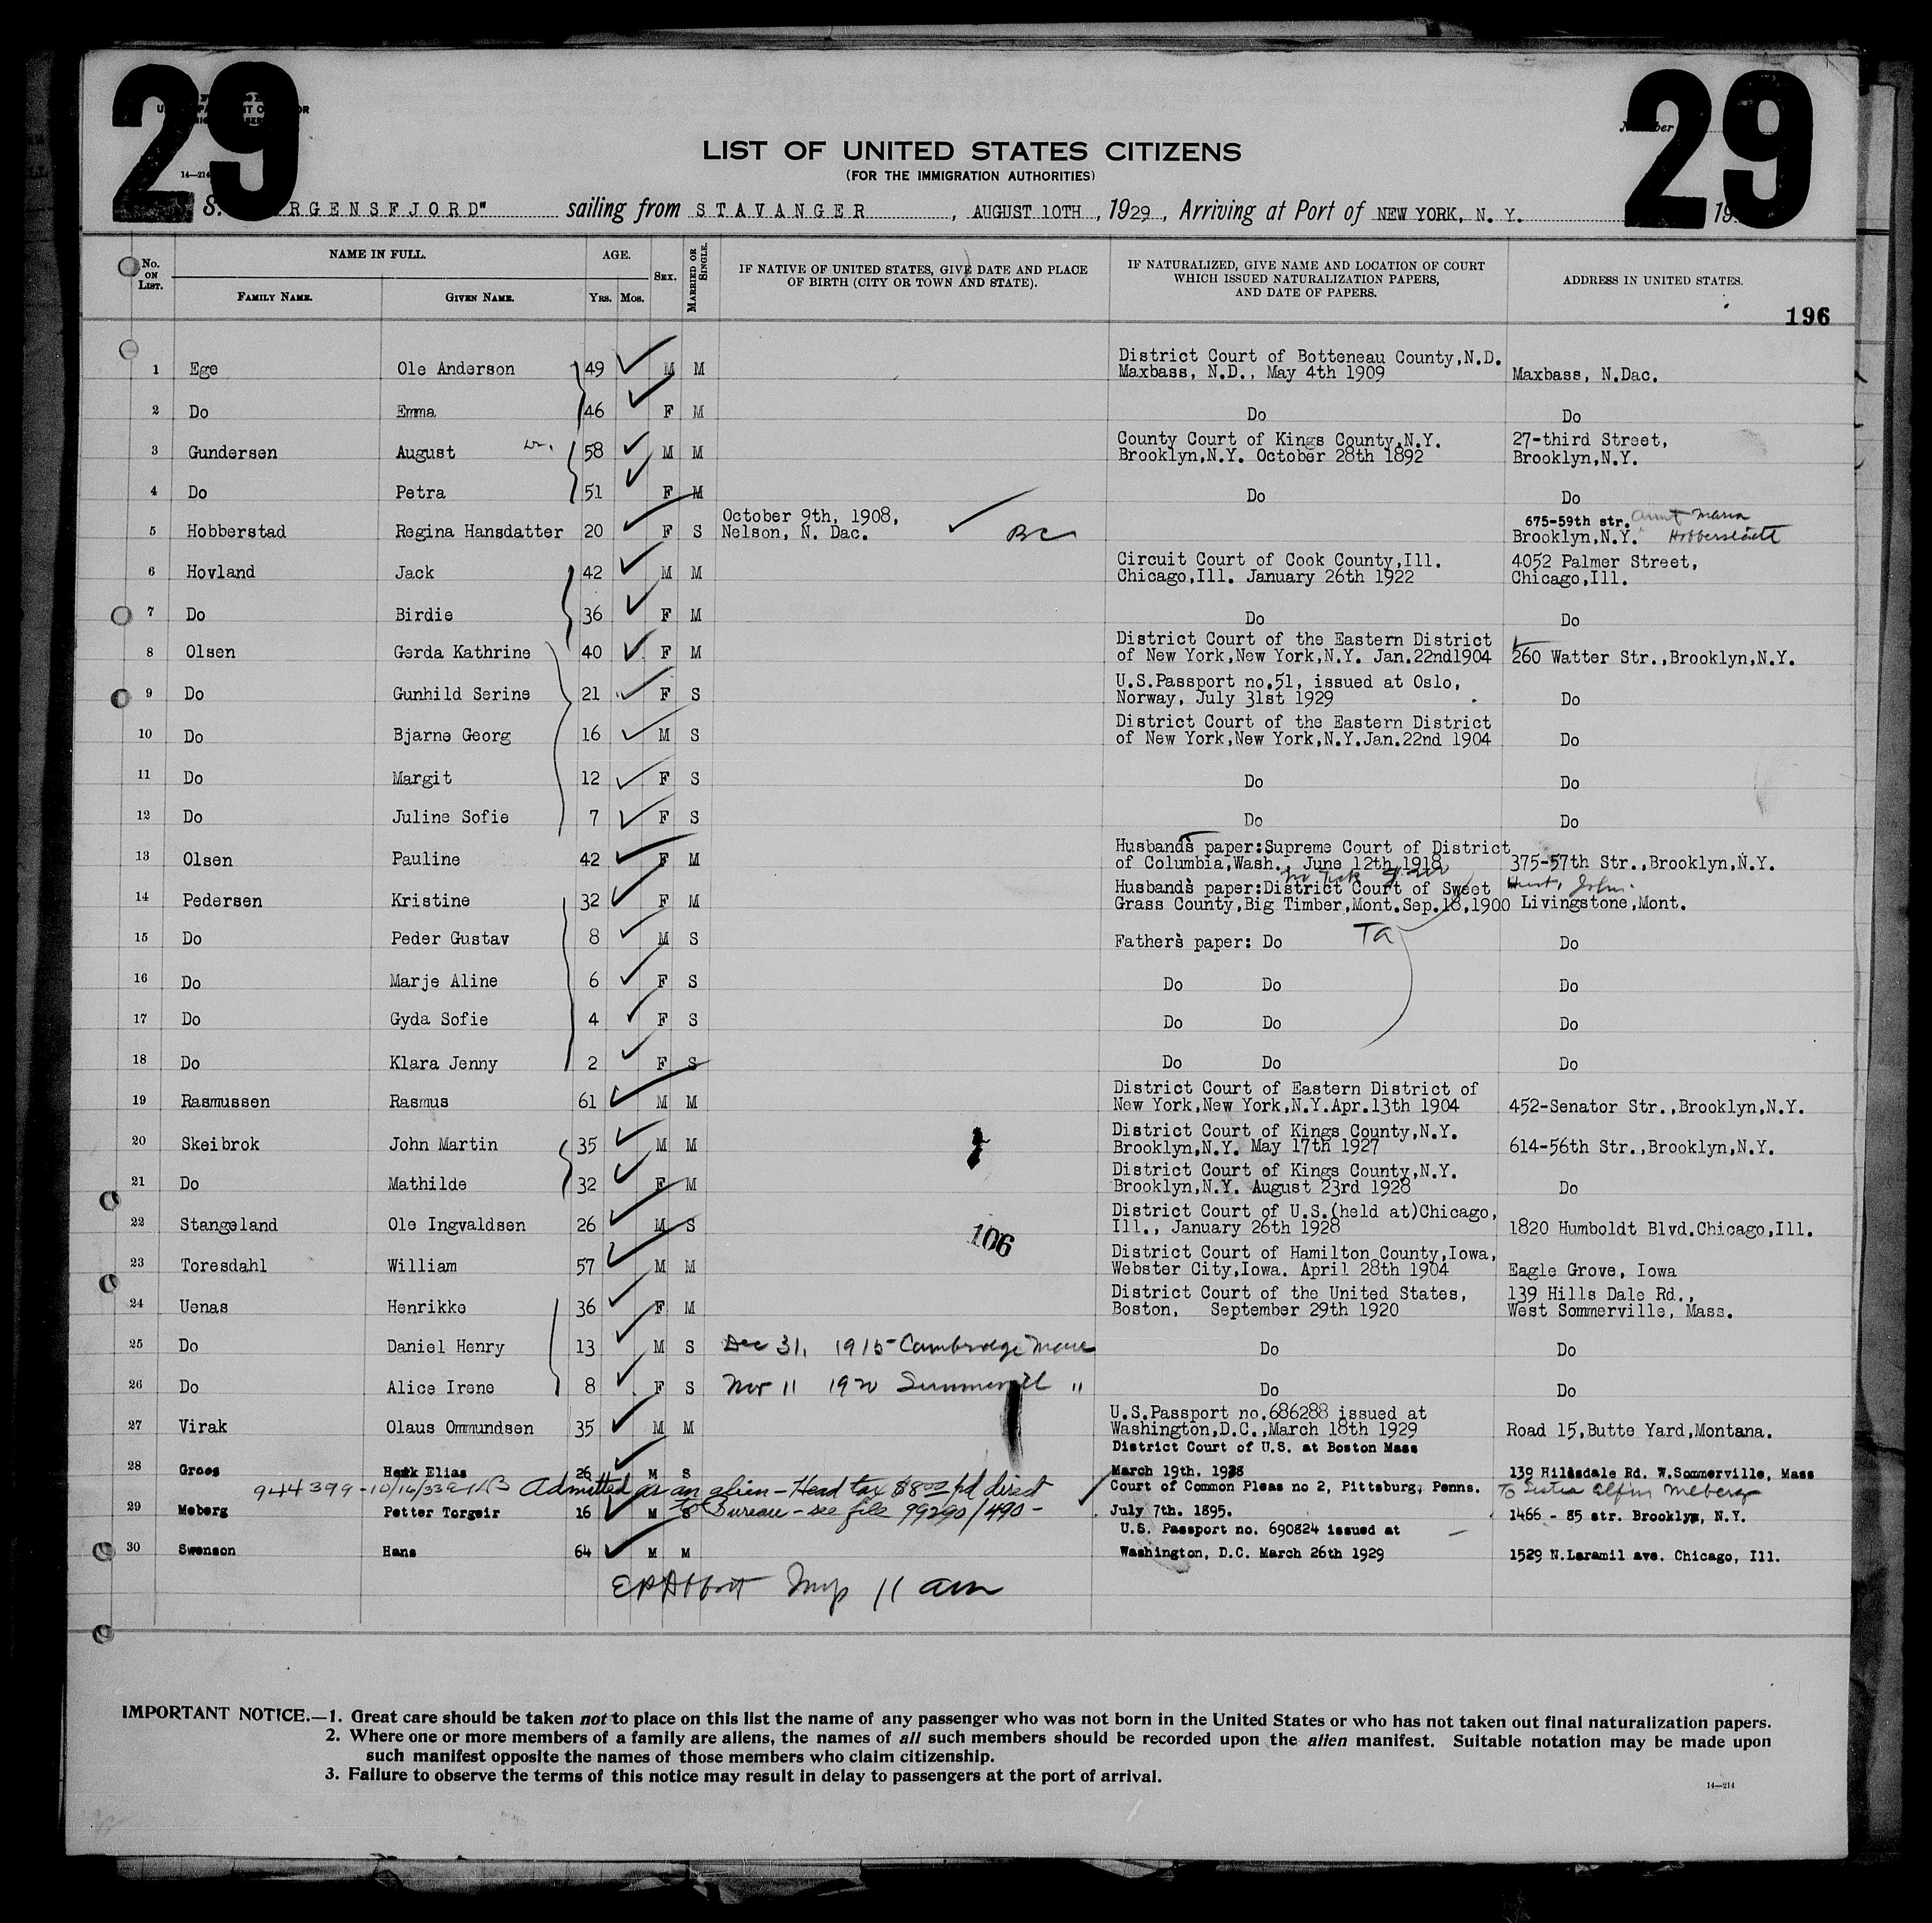 29
29
LIST OF UNITED STATES CITIZENS
(FOR THE IMMIGRATION AUTHORITIES)
14—214
S. RGENSFJORD" sailing from STAVANGER, AUGUST 10TH, 1929, Arriving at Port of NEW YORK, N. Y. 19
No. ON LIST.
NAME IN FULL.
FAMILY NAME.
GIVEN NAME.
AGE.
YRS. MOS.
SEX.
MARRIED OR SINGLE.
IF NATIVE OF UNITED STATES, GIVE DATE AND PLACE
OF BIRTH (CITY OR TOWN AND STATE).
IF NATURALIZED, GIVE NAME AND LOCATION OF COURT
WHICH ISSUED NATURALIZATION PAPERS,
AND DATE OF PAPERS.
ADDRESS IN UNITED STATES.
196
District Court of Botteneau County,N.D.
1 Ege Ole Anderson 49 M M Maxbass, N.D., May 4th 1909 Maxbass, N.Dac.
2 Do Emma 46 F M Do Do
County Court of Kings County,N.Y. 27-third Street,
3 Gundersen August 58 M M Brooklyn,N.Y. October 28th 1892 Brooklyn,N.Y.
4 Do Petra 51 F M Do Do
October 9th, 1908, 675-59th str. Aunt Maria
5 Hobberstad Regina Hansdatter 20 F S Nelson, N. Dac. BC Brooklyn,N.Y. Hobberstadt
Circuit Court of Cook County,Ill. 4052 Palmer Street,
6 Hovland Jack 42 M M Chicago,Ill. January 26th 1922 Chicago,Ill.
7 Do Birdie 36 F M Do Do
District Court of the Eastern District
8 Olsen Gerda Kathrine 40 F M of New York,New York,N.Y. Jan.22nd1904 260 Watter Str.,Brooklyn,N.Y.
U.S.Passport no.51, issued at Oslo,
9 Do Gunhild Serine 21 F S Norway, July 31st 1929 Do
District Court of the Eastern District
10 Do Bjarne Georg 16 M S of New York,New York,N.Y.Jan.22nd 1904 Do
11 Do Margit 12 F S Do Do
12 Do Juline Sofie 7 F S Do Do
Husband's paper:Supreme Court of District
13 Olsen Pauline 42 F M of Columbia,Wash., June 12th 1918 375-57th Str.,Brooklyn,N.Y.
Husband's paper:District Court of Sweet John
14 Pedersen Kristine 32 F M Grass County,Big Timber,Mont.Sep.18,1900 Livingstone,Mont.
15 Do Peder Gustav 8 M S Father's paper: Do Ta Do
16 Do Marje Aline 6 F S Do Do Do
17 Do Gyda Sofie 4 F S Do Do Do
18 Do Klara Jenny 2 F S Do Do Do
District Court of Eastern District of
19 Rasmussen Rasmus 61 M M New York,New York,N.Y.Apr.13th 1904 452-Senator Str.,Brooklyn,N.Y.
District Court of Kings County,N.Y.
20 Skeibrok John Martin 35 M M Brooklyn,N.Y. May 17th 1927 614-56th Str.,Brooklyn,N.Y.
District Court of Kings County,N.Y.
21 Do Mathilde 32 F M Brooklyn,N.Y. August 23rd 1928 Do
District Court of U.S.(held at)Chicago,
22 Stangeland Ole Ingvaldsen 26 M S Ill., January 26th 1928 1820 Humboldt Blvd.Chicago,Ill.
106
District Court of Hamilton County,Iowa,
23 Toresdahl William 57 M M Webster City,Iowa. April 28th 1904 Eagle Grove, Iowa
District Court of the United States, 139 Hills Dale Rd.,
24 Uenas Henrikke 36 F M Boston, September 29th 1920 West Sommerville, Mass.
25 Do Daniel Henry 13 M S Dec 31, 1915 Cambridge Mass Do Do
26 Do Alice Irene 8 F S Nov 11 1920 Summervill " Do Do
U.S.Passport no.686288 issued at
27 Virak Olaus Ommundsen 35 M M Washington,D.C.,March 18th 1929 Road 15,Butte Yard,Montana.
District Court of U.S. at Boston Mass
28 Groes Henk Elias 26 M S March 19th. 1928 139 Hillsdale Rd. W.Sommerville, Mass
944399-10/16/33 Admitted as an alien - Head tax $8.00 pd direct Court of Common Pleas no 2, Pittsburg, Penns. To Sister Meberg
29 Meberg Petter Torgeir 16 M S to Bureau - see file 99290/490 - July 7th. 1895. 1466 - 85 str. Brooklyn, N.Y.
U.S. Passport no. 690824 issued at
30 Swenson Hans 64 M M Washington, D.C. March 26th 1929 1529 N.Laramil ave. Chicago, Ill.
Insp 11 am
IMPORTANT NOTICE.—1. Great care should be taken not to place on this list the name of any passenger who was not born in the United States or who has not taken out final naturalization papers.
2. Where one or more members of a family are aliens, the names of all such members should be recorded upon the alien manifest. Suitable notation may be made upon
such manifest opposite the names of those members who claim citizenship.
3. Failure to observe the terms of this notice may result in delay to passengers at the port of arrival.
14—214